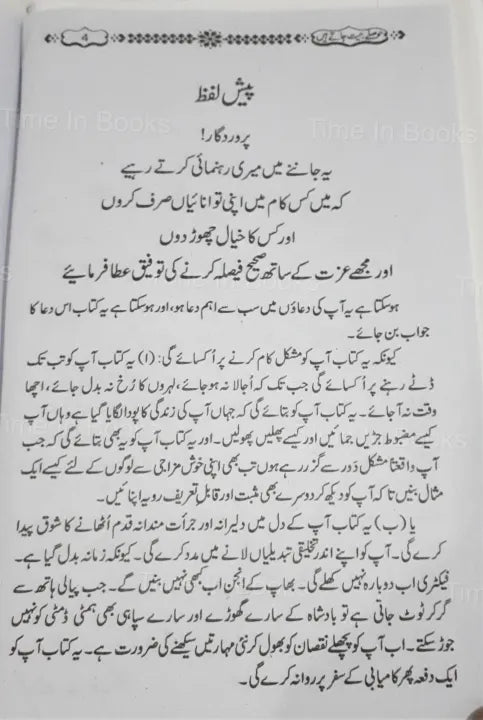 4
حوصلے جیت جاتے ہیں
پیش لفظ
پروردگار!
یہ جاننے میں میری رہنمائی کرتے رہیے
کہ میں کس کام میں اپنی توانائیاں صرف کروں
اور کس کا خیال چھوڑ دوں
اور مجھے عزت کے ساتھ صحیح فیصلہ کرنے کی توفیق عطا فرمائیے
ہوسکتا ہے یہ آپ کی دعاؤں میں سب سے اہم دعا ہو، اور ہوسکتا ہے یہ کتاب اس دعا کا
جواب بن جائے۔
کیونکہ یہ کتاب آپ کو مشکل کام کرنے پر اُکسائے گی: (ا) یہ کتاب آپ کو تب تک
ڈٹے رہنے پر اُکسائے گی جب تک کہ اُجالا نہ ہوجائے، لہروں کا رُخ نہ بدل جائے، اچھا
وقت نہ آجائے۔ یہ کتاب آپ کو بتائے گی کہ جہاں آپ کی زندگی کا پودا لگایا گیا ہے وہاں آپ
کیسے مضبوط جڑیں جمائیں اور کیسے پھلیں پھولیں۔ اور یہ کتاب آپ کو یہ بھی بتائے گی کہ جب
آپ واقعتاً مشکل دَور سے گزر رہے ہوں تب بھی اپنی خوش مزاجی سے لوگوں کے لئے کیسے ایک
مثال بنیں تاکہ آپ کو دیکھ کر دوسرے بھی مثبت اور قابلِ تعریف رویہ اپنائیں۔
یا (ب) یہ کتاب آپ کے دل میں دلیرانہ اور جرأت مندانہ قدم اُٹھانے کا شوق پیدا
کرے گی۔ آپ کو اپنے اندر تخلیقی تبدیلیاں لانے میں مدد کرے گی۔ کیونکہ زمانہ بدل گیا ہے۔
فیکٹری اب دوبارہ نہیں کھلے گی۔ بھاپ کے انجن اب کبھی نہیں بنیں گے۔ جب پیالی ہاتھ سے
گر کر ٹوٹ جاتی ہے تو بادشاہ کے سارے گھوڑے اور سارے سپاہی بھی ہمٹی ڈمٹی کو نہیں
جوڑ سکتے۔ اب آپ کو پچھلے نقصان کو بھول کر نئی مہارتیں سیکھنے کی ضرورت ہے۔ یہ کتاب آپ کو
ایک دفعہ پھر کامیابی کے سفر پر روانہ کرے گی۔
Time In Books
Time In Books